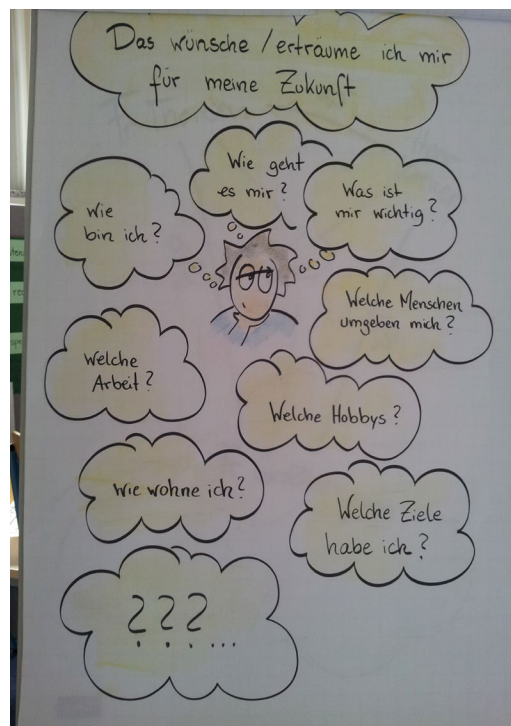 Das wünsche / erträume ich mir
für meine Zukunft
Wie geht
es mir?
Was ist
mir wichtig?
Wie
bin ich?
Welche Menschen
umgeben mich?
Welche
Arbeit?
Welche Hobbys?
Wie wohne ich?
Welche Ziele
habe ich?
???...